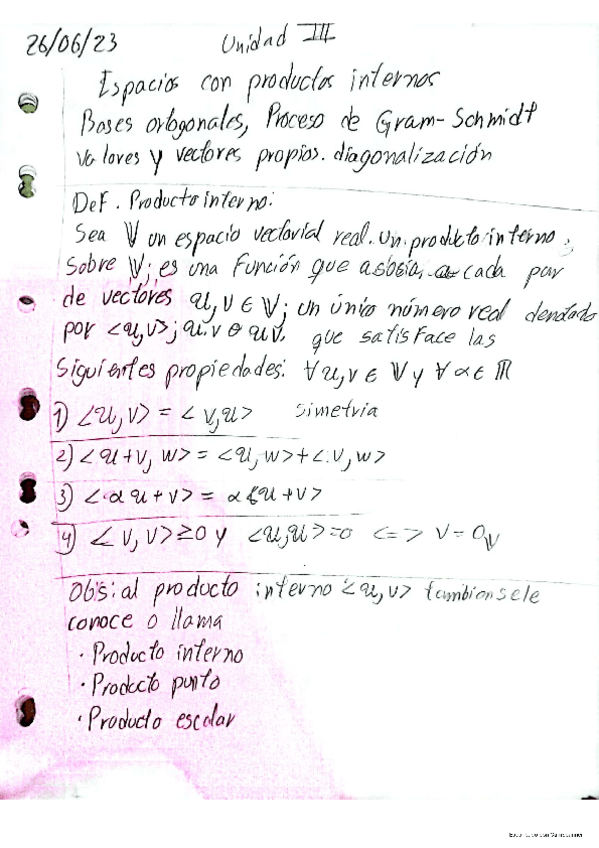 26/06/23 Unidad III
Espacios con productos internos
Bases ortogonales, Proceso de Gram-Schmidt
Valores y vectores propios. diagonalización
Def. Producto interno:
Sea 𝕍 un espacio vectorial real. un producto interno,
Sobre 𝕍; es una función que asosia, a cada par
de vectores u, v ∈ 𝕍; un único número real denotado
por <u,v>; u.v o uv. que satisface las
Siguientes propiedades: ∀u,v ∈ 𝕍 y ∀α ∈ ℝ
1) <u,v> = <v,u> Simetria
2) <u+v, w> = <u,w>+<v,w>
3) <αu+v> = α<u+v>
4) <v,v> ≥0 y <u,u>=0 <=> v=0𝕍
Obs: al producto interno <u,v> tambien sele
conoce o llama
· Producto interno
· Producto punto
· Producto escolar